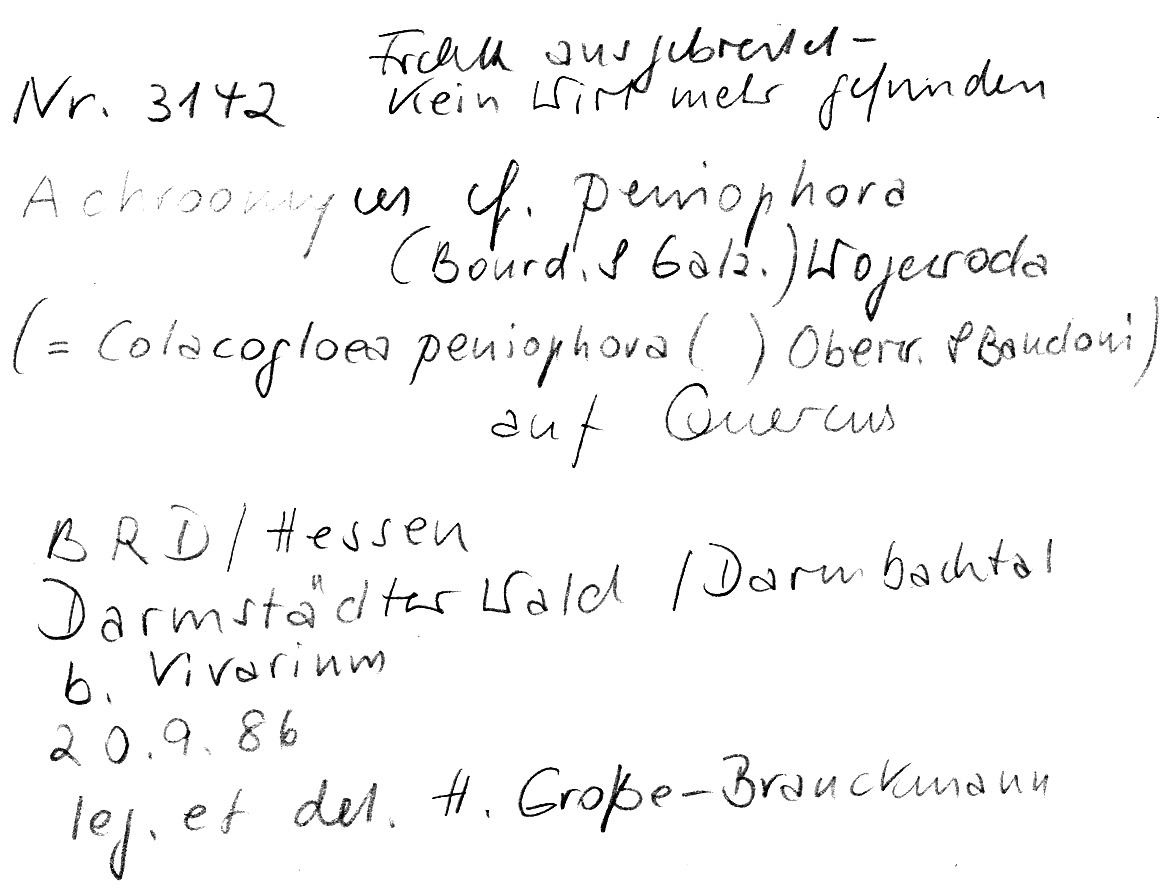 Frchtk ausgebreitet -
Nr. 3142 Kein Wirt mehr gefunden
Achroomyces cf. peniophora
(Bourd. & Galz.) Wojewoda
(= Colacogloea peniophora ( ) Oberw. & Bandoni)
auf Quercus
BRD / Hessen
Darmstädter Wald / Darmbachtal
b. Vivarium
20.9.86
leg. et det. H. Große-Brauckmann